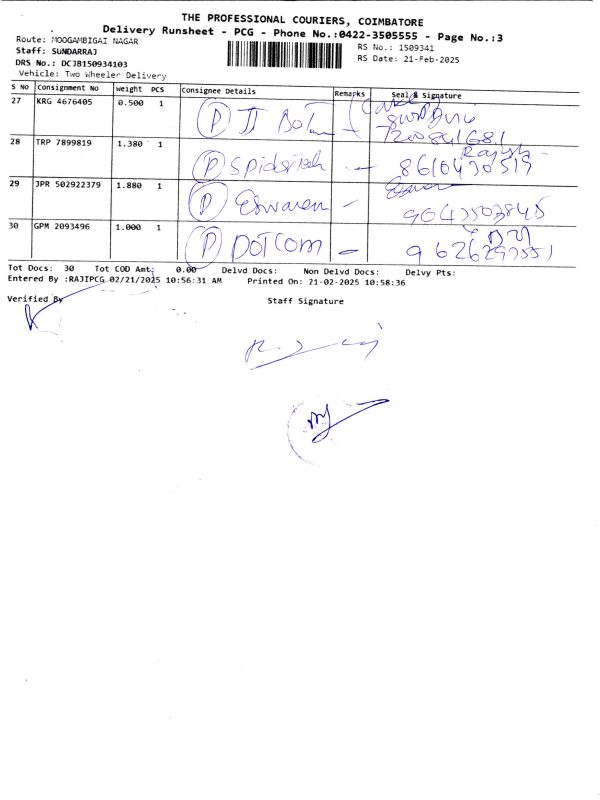 THE PROFESSIONAL COURIERS, COIMBATORE
Delivery Runsheet - PCG - Phone No.:0422-3505555 - Page No.:3
Route: MOOGAMBIGAI NAGAR
RS No.: 1509341
Staff: SUNDARRAJ
RS Date: 21-Feb-2025
DRS No.: DCJB150934103
Vehicle: Two Wheeler Delivery
S No Consignment No Weight PCS Consignee Details Remarks Seal & Signature
27 KRG 4676405 0.500 1 P
28 TRP 7899819 1.380 1 P Rajesh
8610430519
29 JPR 502922379 1.880 1 P Eswaren -
9043503845
30 GPM 2093496 1.000 1 P DOTCOM -
9626297551
Tot Docs: 30 Tot COD Amt: 0.00 Delvd Docs: Non Delvd Docs: Delvy Pts:
Entered By :RAJIPCG 02/21/2025 10:56:31 AM Printed On: 21-02-2025 10:58:36
Verified By Staff Signature